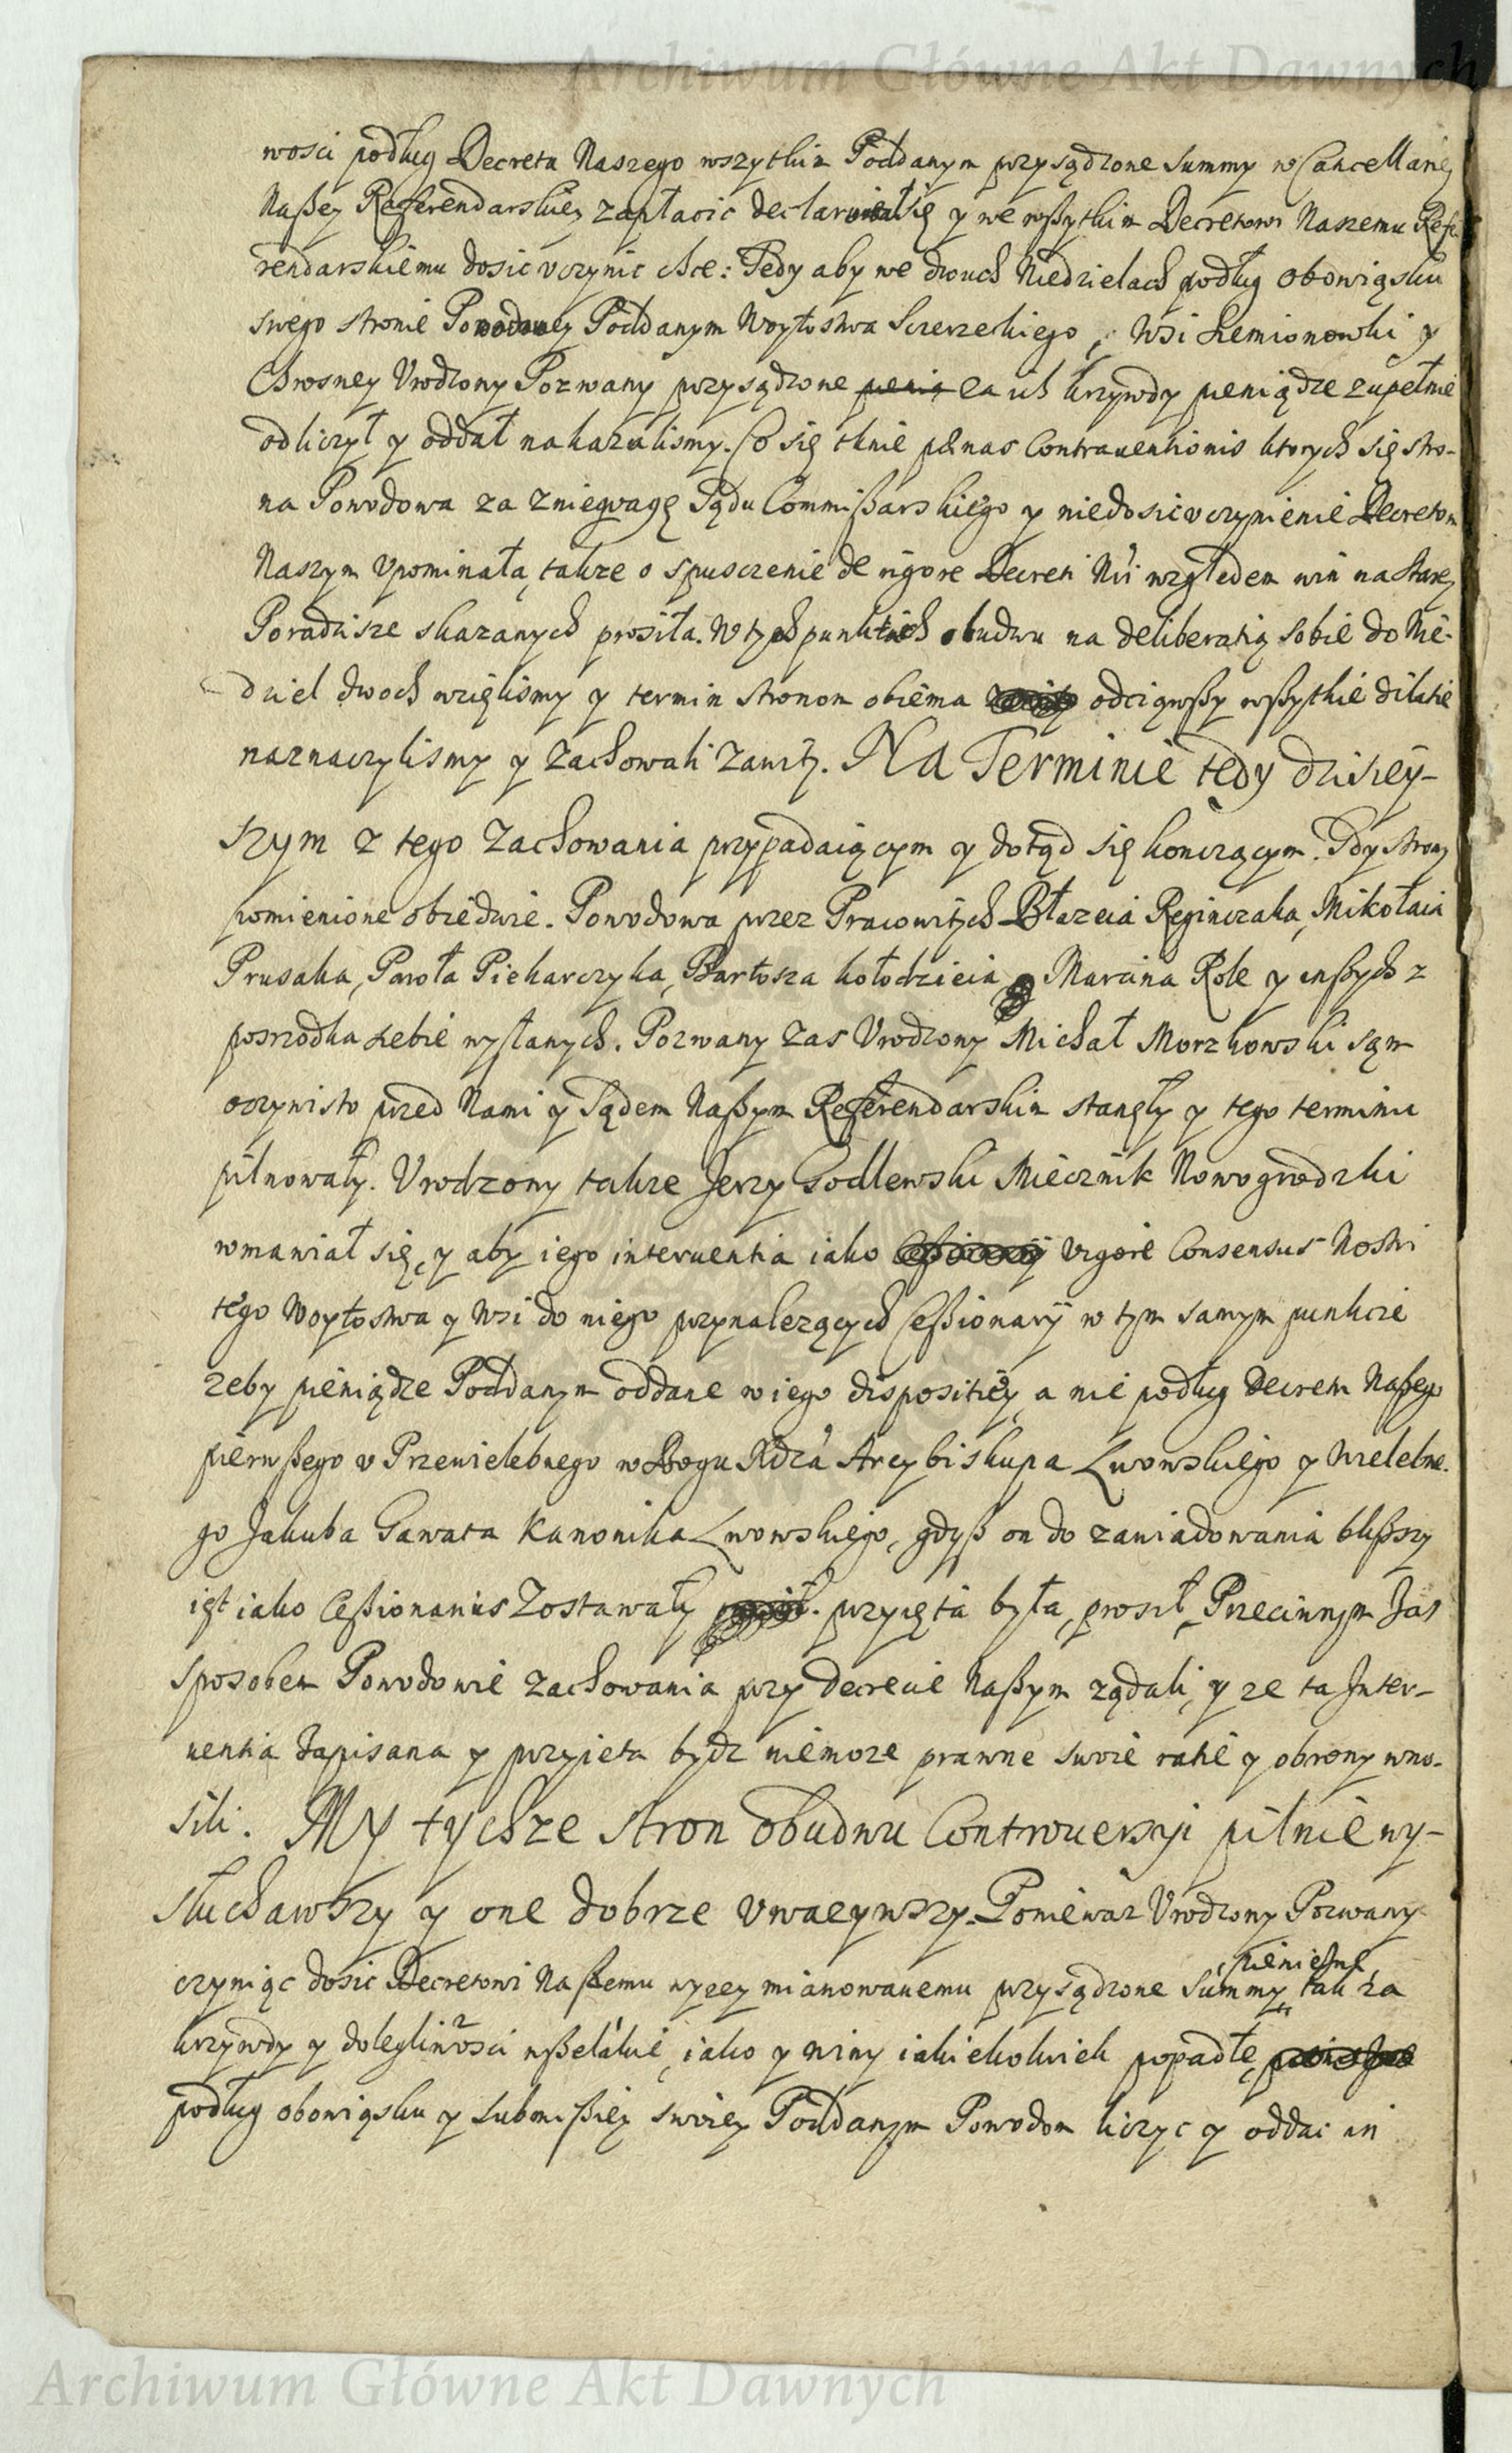 Archiwum Główne Akt Dawnych
wosci podług Decretu Naszego wszytkim Poddanym przysądzone summy w Cancellariey
Naßey Referendarskiey zapłacic declarował się y we wßytkim Decretowi Naszemu Refe
rendarskiemu dosic vczynic chce: Tedy aby we dwuch Niedzielach podług obowiąsku
swego stronie Powodowey Poddanym Woytostwa Sczerzeckiego, Wsi Siemionowki y
Chrosney Vrodzony Pozwany przysądzone za ich krzywdy pieniądze zupełnie
odliczył y oddał nakazalismy. Co się tknie pœnas Contrauentionis ktorych się stro-
na Powodowa za zniewagę Sądu Commißarskiego y niedosicvczynienie Decretom
Naszym vpominała, takze o spusczenie de rigore Decreti Nri względem win na starey
Poradzisze skazanych prosiła. W tych punktach obudwu na deliberatią sobie do Nie-
dziel dwoch wzięlismy y termin stronom obiema odciąwßy wßytkie dilatie
naznaczylismy y zachowali zawity. Na Terminie tedy dzisiey-
szym z tego zachowania przypadaiącym y dotąd się konczącym. Gdy strony
pomienione obiedwie. Powodowa przez Pracowitych Błazeia Reginczaka, Mikołaia
Prusaka, Pawła Piekarczyka, Bartosza kołodzieia Marcina Role y inßych z
posrzodka siebie wysłanych. Pozwany zas Vrodzony Michał Morzkowski sąm
oczywisto przed Nami y Sądem Naßym Referendarskim stanęły y tego terminu
pilnowały. Vrodzony takze Jerzy Godlewski Miecznik Nowogrodzki
wmawiał się, y aby iego interuentia iako vigore Consensus Nostri
tego Woytostwa y Wsi do niego przynalezących Ceßionarij w tym samym punkcie
zeby pieniądze Poddanym oddane w iego dispositiey, a nie podług Decretu Naßego
pierwßego v Przewielebnego w Bogu Xdza Arcybiskupa Lwowskiego y Wielebne-
go Jakuba Gawata Kanonika Lwowskiego, gdyß on do zawiadowania blißszy
iest iako Ceßionarius Zostawały przyięta była, prosił. Przeciwnym zas
sposobem Powodowie zachowania przy Decrecie Naßym ządali, y ze ta Inter-
uentia zapisana y przyieta bydz niemoze prawne swoie ratie y obrony wno-
sili. My tychze stron obudwu Controuersyi pilnie wy-
słuchawszy y one dobrze vwazywszy. Poniewaz Vrodzony Pozwany
czyniąc dosic Decretowi Naßemu wyzey mianowanemu przysądzone summy pieniężne tak za
krzywdy y dolegliwosci wßelakie, iako y winy iakiekolwiek popadłe
podług obowiąsku y submißiey swoiey Poddanym Powodom liczyc y oddac im
Archiwum Główne Akt Dawnych